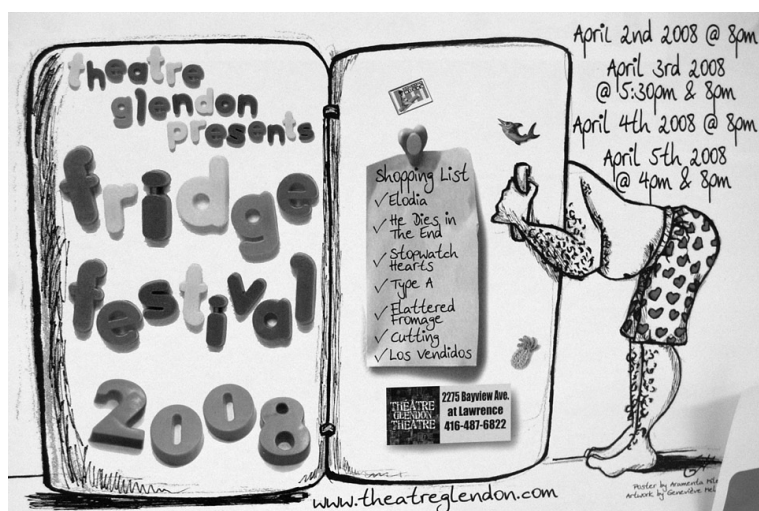 theatre
glendon
presents
fridge
festival
2008
Shopping List
✓ Elodia
✓ He Dies in
The End
✓ Stopwatch
Hearts
✓ Type A
✓ Flattered
Fromage
✓ Cutting
✓ Los Vendidos
THEATRE
GLENDON
THEATRE
2275 Bayview Ave.
at Lawrence
416-487-6822
www.theatreglendon.com
April 2nd 2008 @ 8pm
April 3rd 2008
@ 5:30pm & 8pm
April 4th 2008 @ 8pm
April 5th 2008
@ 4pm & 8pm
Poster by
Artwork by Geneviève